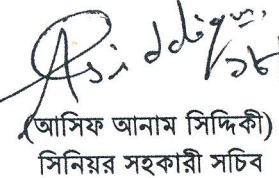 (আসিফ আনাম সিদ্দিকী)
সিনিয়র সহকারী সচিব